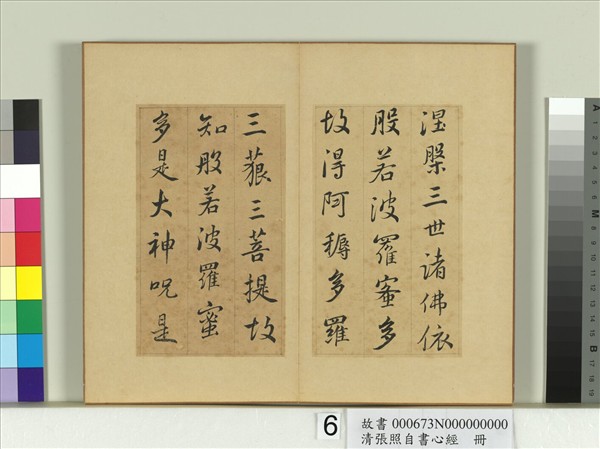 涅槃三世諸佛依
般若波羅蜜多
故得阿耨多羅
三藐三菩提故
知般若波羅蜜
多是大神呪是
6
故書 000673N000000000
清張照自書心經 冊